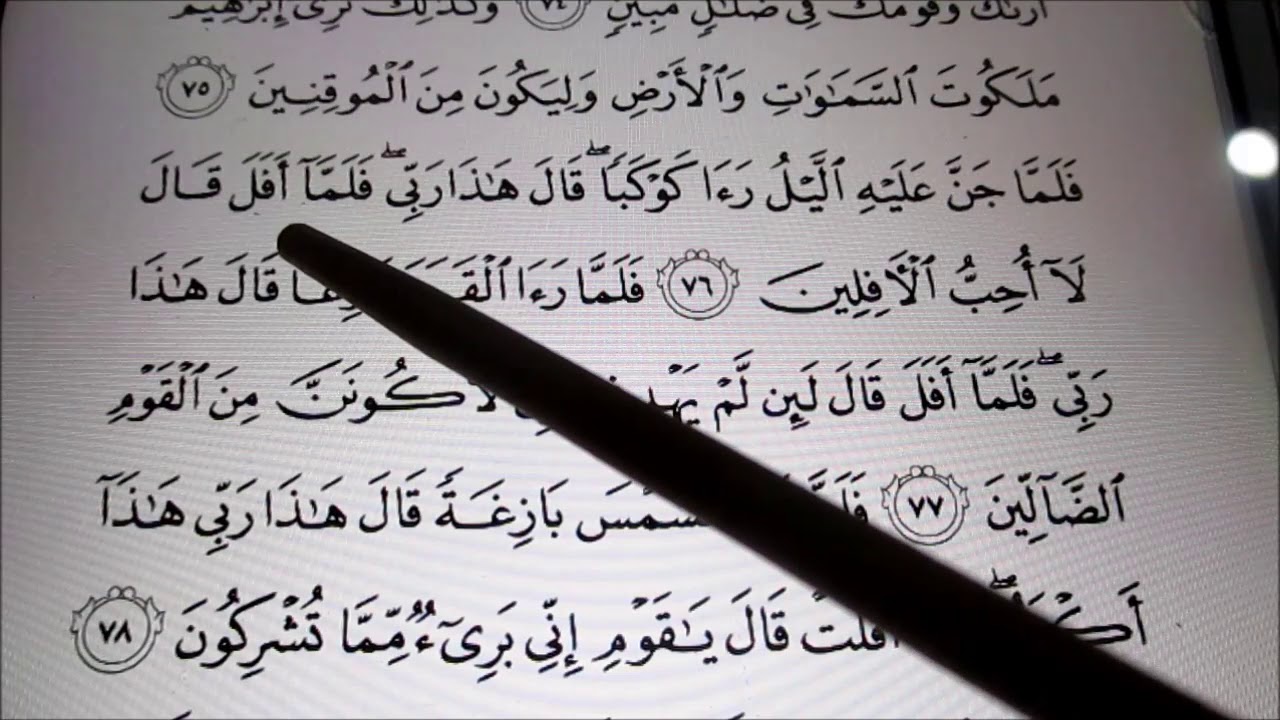 أَرَىٰكَ وَقَوْمَكَ فِي ضَلَـٰلٍ مُّبِينٍ ٧٤ وَكَذَٰلِكَ نُرِيٓ إِبْرَٰهِيمَ
مَلَكُوتَ ٱلسَّمَـٰوَٰتِ وَٱلْأَرْضِ وَلِيَكُونَ مِنَ ٱلْمُوقِنِينَ ٧٥
فَلَمَّا جَنَّ عَلَيْهِ ٱلَّيْلُ رَءَا كَوْكَبًاۖ قَالَ هَـٰذَا رَبِّيۖ فَلَمَّآ أَفَلَ قَالَ
لَآ أُحِبُّ ٱلْأَفِلِينَ ٧٦ فَلَمَّا رَءَا قَالَ هَـٰذَا
رَبِّيۖ فَلَمَّآ أَفَلَ قَالَ لَئِن لَّمْ لَأَكُونَنَّ مِنَ ٱلْقَوْمِ
ٱلضَّآلِّينَ ٧٧ بَازِغَةً قَالَ هَـٰذَا رَبِّي هَـٰذَآ
أَفَلَتْ قَالَ يَـٰقَوْمِ إِنِّي بَرِيٓءٌ مِّمَّا تُشْرِكُونَ ٧٨